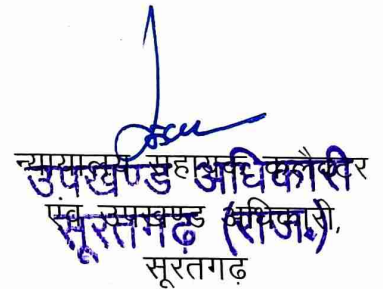 न्यायालय सहायक कलैक्टर
उपखण्ड अधिकारी
एवं उपखण्ड अधिकारी,
सूरतगढ़ (राज.)
सूरतगढ़